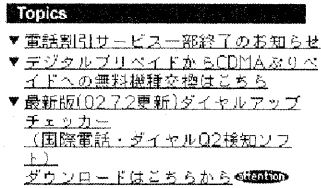 Topics
▼電話割引サービス一部終了のお知らせ
▼デジタルプリペイドからCDMAぷりペ
イドへの無料機種交換はこちら
▼最新版(02.7.2更新)ダイヤルアップ
チェッカー
(国際電話・ダイヤルQ2検知ソフ
ト)
ダウンロードはこちらから attention